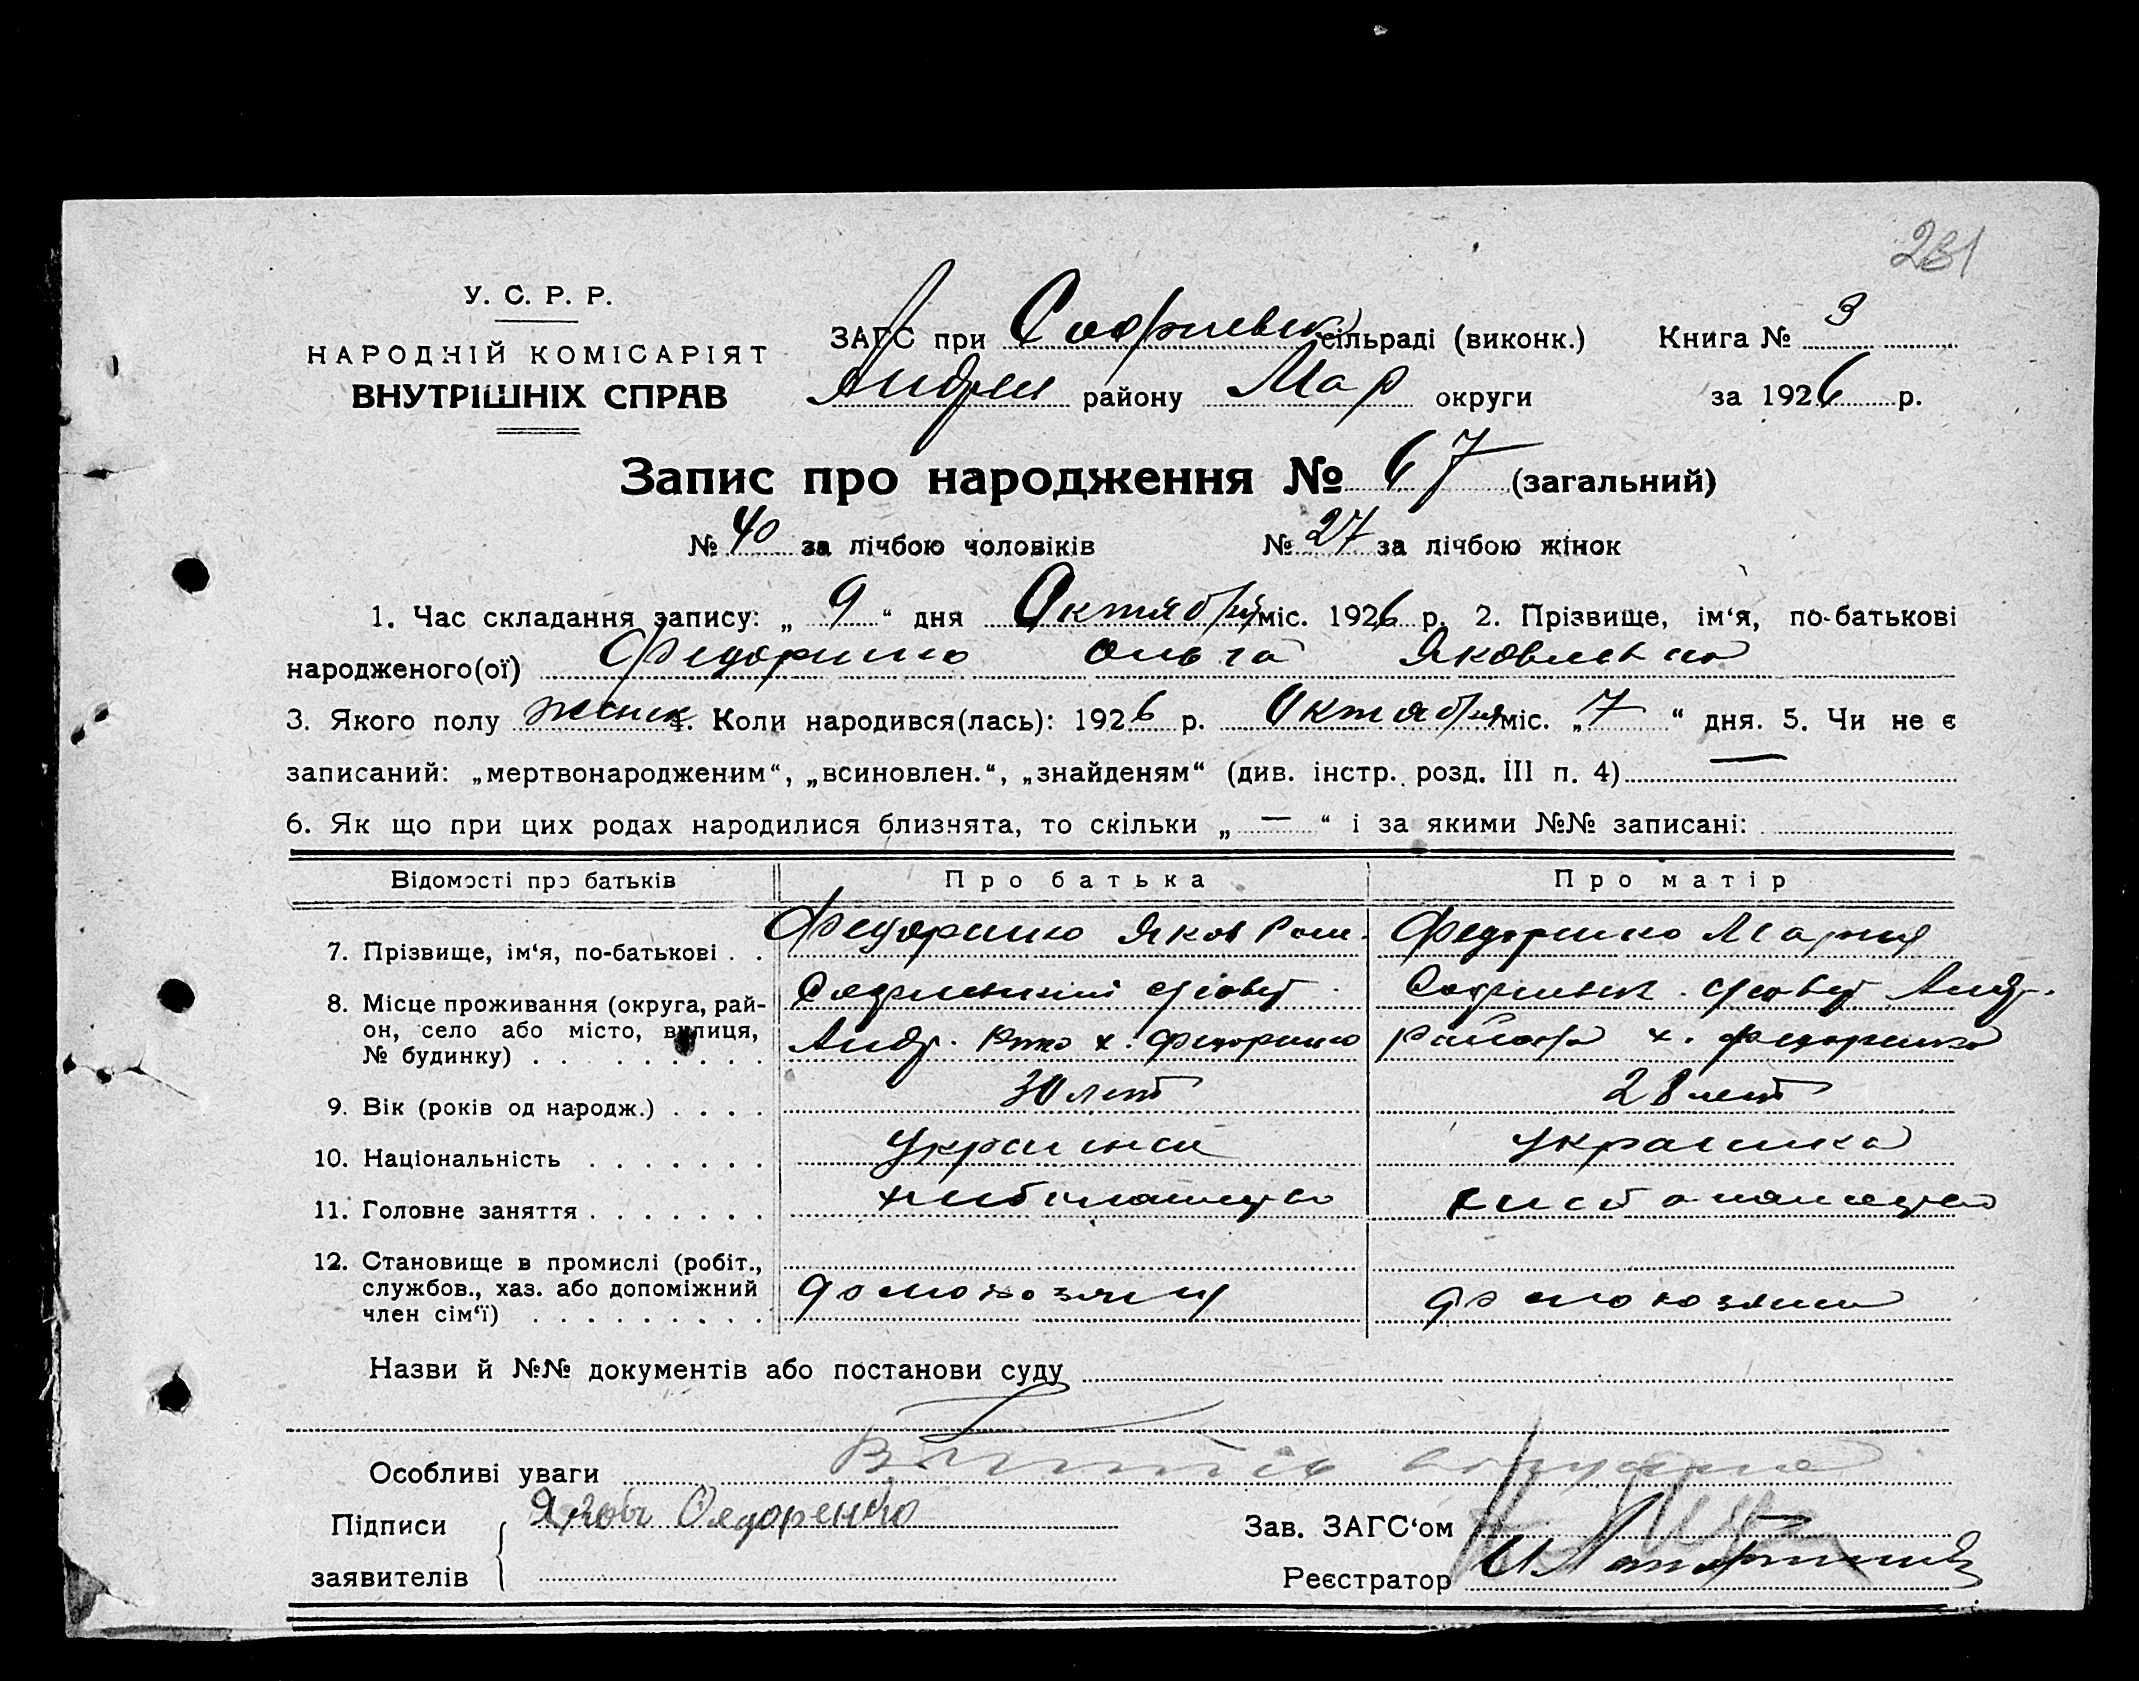 281
У. С. Р. Р.
НАРОДНІЙ КОМІСАРІЯТ
ВНУТРІШНІХ СПРАВ
ЗАГС при Софиевск сільраді (виконк.) Книга № 3
Андри району Мар округи за 1926 р.
Запис про народження № 67 (загальний)
№ 40 за лічбою чоловіків № 27 за лічбою жінок
1. Час складання запису: „ 9 “ дня Октября міс. 1926 р. 2. Прізвище, ім‘я, по-батькові
народженого(ої) Федоринко Ольга Яковлевна
3. Якого полу женск 4. Коли народився(лась): 1926 р. Октября міс. „ 7 “ дня. 5. Чи не є
записаний: „мертвонародженим“, „всиновлен.“, „знайденям“ (див. інстр. розд. III п. 4) —
6. Як що при цих родах народилися близнята, то скільки „ — “ і за якими №№ записані:
Відомості про батьків Про батька Про матір
7. Прізвище, ім‘я, по-батькові . . Федоринко Яков Ром. Федоринко Мария
8. Місце проживання (округа, рай-
он, село або місто, вулиця,
№ будинку) . . . . . . . .
Андр. х. Федоринко района х. Федоринко
9. Вік (років од народж.) . . . . 30 лет 28 лет
10. Національність . . . . . . . Украинец Украинка
11. Головне заняття . . . . . . . хлебопашество хлебопашество
12. Становище в промислі (робіт.,
службов., хаз. або допоміжний
член сім‘ї) . . . . . . . . .
домохозяин домохозяин
Назви й №№ документів або постанови суду
Особливі уваги
Підписи
заявителів
Яковъ Федоренко
Зав. ЗАГС‘ом
Реєстратор